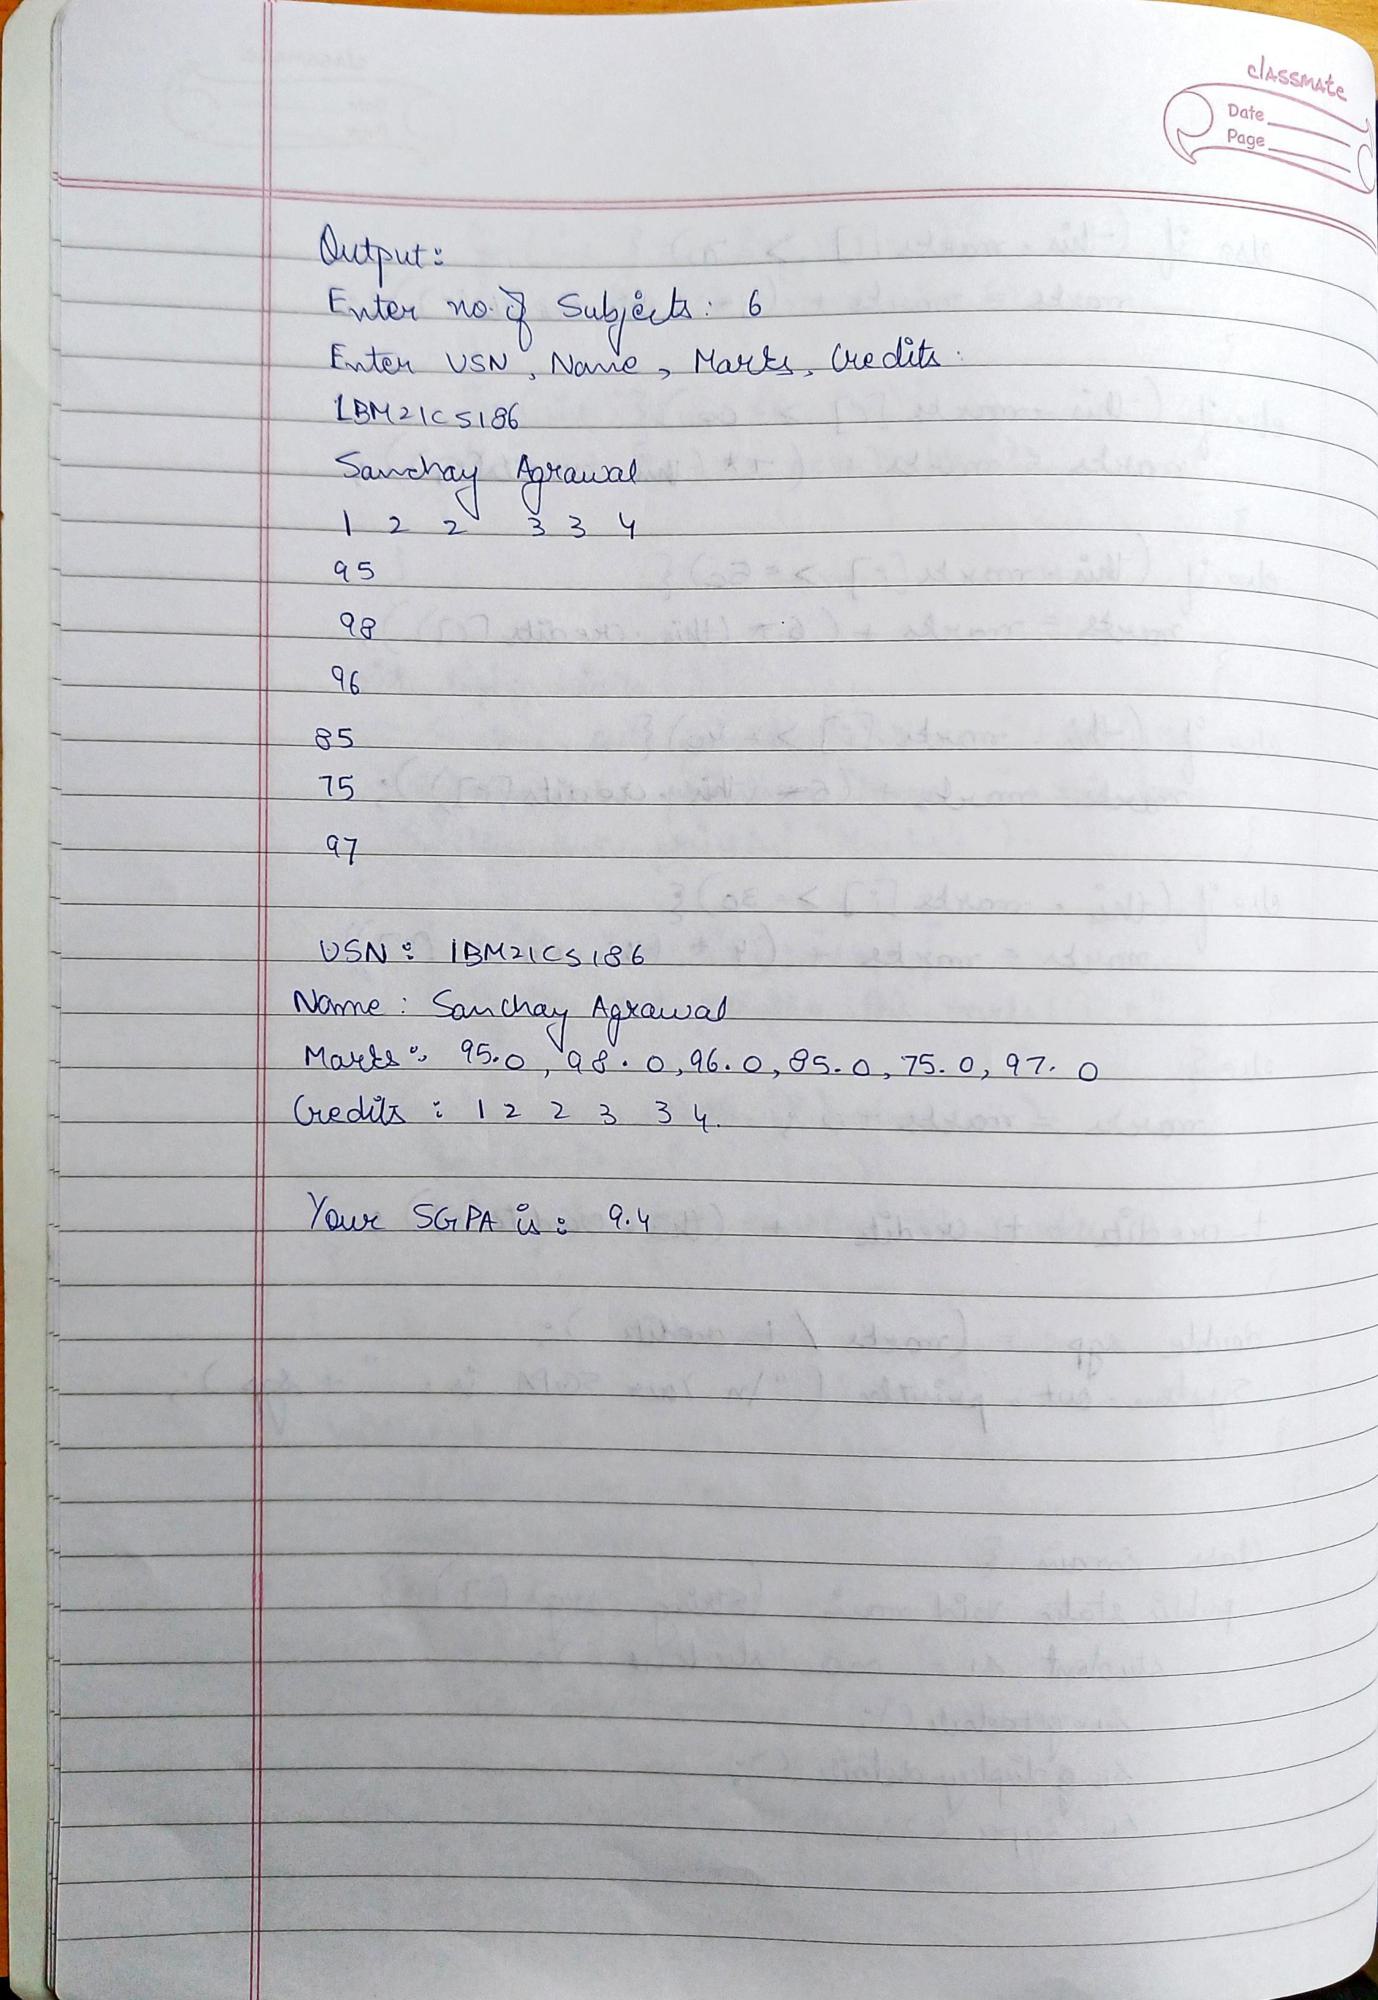 classmate
Date
Page
Output:
Enter no. of Subjects: 6
Enter USN, Name, Marks, Credits:
1BM21CS186
Sanchay Agrawal
1 2 2 3 3 4
95
98
96
85
75
97
USN: 1BM21CS186
Name: Sanchay Agrawal
Marks: 95.0, 98.0, 96.0, 85.0, 75.0, 97.0
Credits: 1 2 2 3 3 4.
Your SGPA is: 9.4